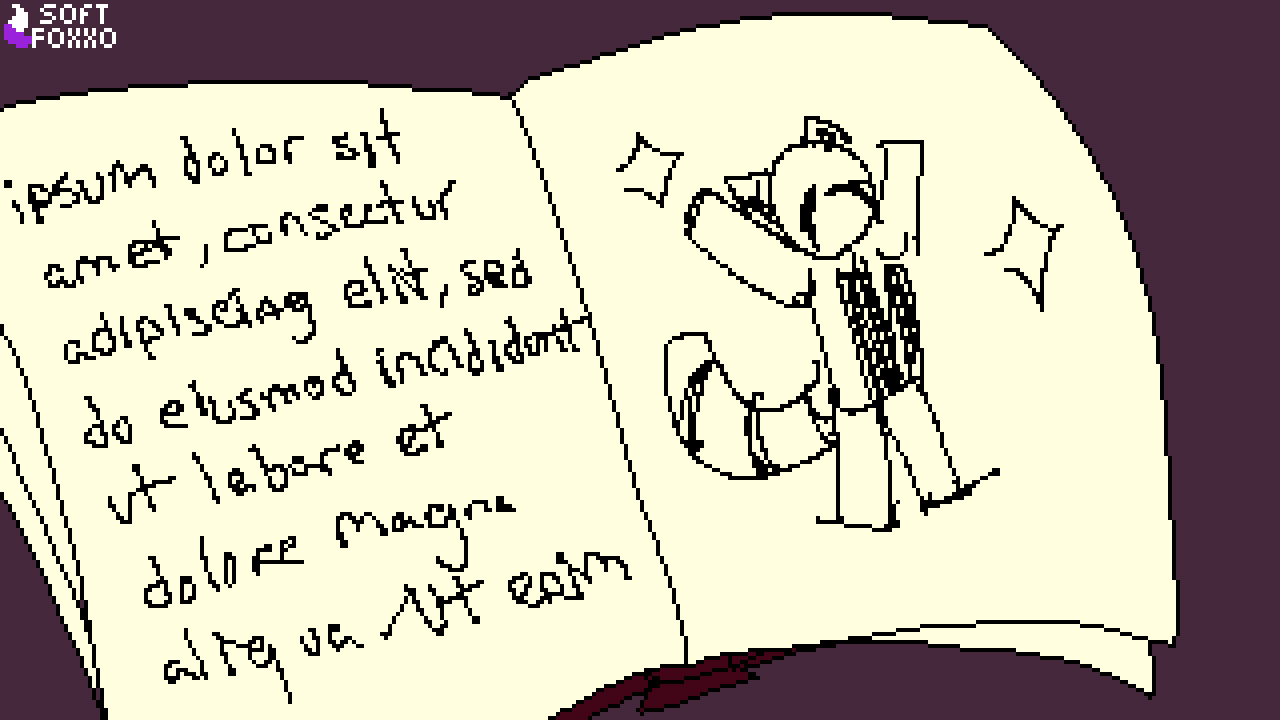 SOFT
FOXXO
ipsum dolor sit
amet, consectur
adipiscing elit, sed
do eiusmod incididont
ut labore et
dolore magna
aliqua Ut enim